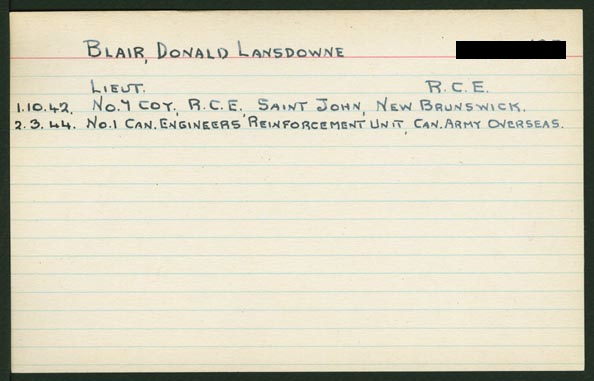 BLAIR, DONALD LANSDOWNE
LIEUT. R.C.E.
1.10.42. NO.7 COY, R.C.E. SAINT JOHN, NEW BRUNSWICK.
2.3.44. NO.1 CAN. ENGINEERS REINFORCEMENT UNIT, CAN. ARMY OVERSEAS.